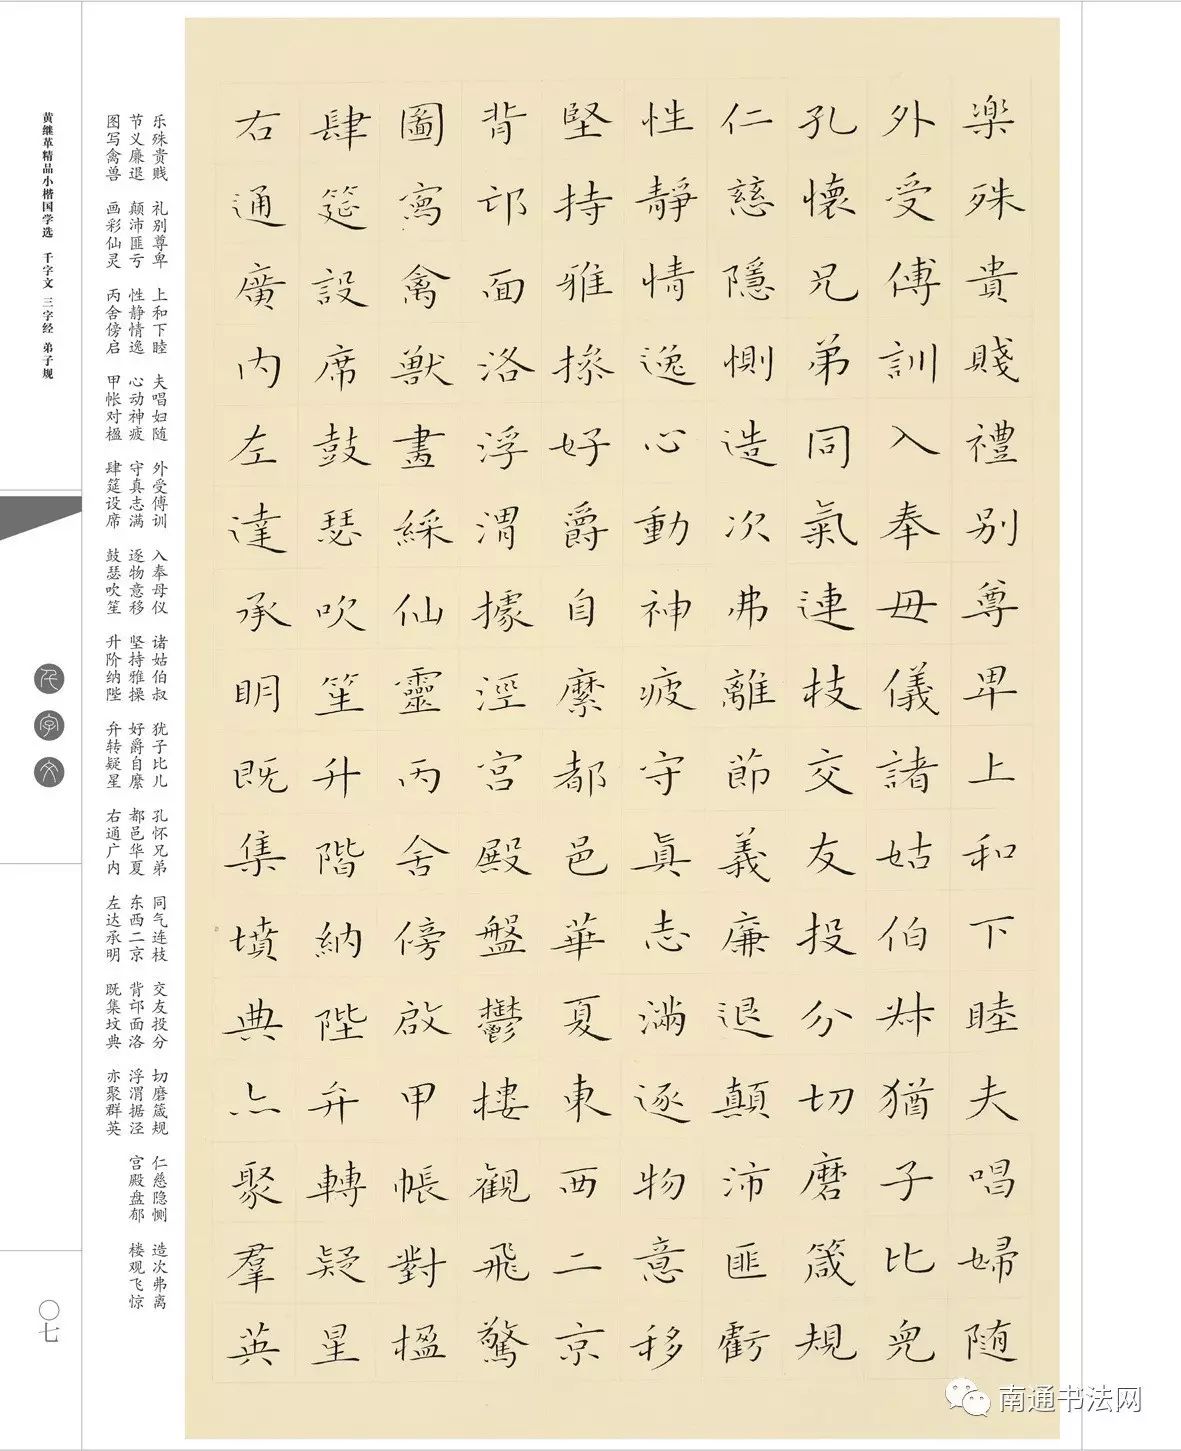 楽殊貴賤禮别尊卑上和下睦夫唱婦随
外受傅訓入奉母儀諸姑伯叔猶子比兒
孔懷兄弟同氣連枝交友投分切磨箴規
仁慈隱惻造次弗離節義廉退顛沛匪虧
性靜情逸心動神疲守真志滿逐物意移
堅持雅操好爵自縻都邑華夏東西二京
背邙面洛浮渭據涇宮殿盤鬱樓觀飛驚
圖寫禽獸畫綵仙靈丙舍傍啟甲帳對楹
肆筵設席鼓瑟吹笙升階納陛弁轉疑星
右通廣内左達承明既集墳典亦聚羣英
乐殊贵贱 礼别尊卑 上和下睦 夫唱妇随 外受傅训 入奉母仪 诸姑伯叔 犹子比儿 孔怀兄弟 同气连枝 交友投分 切磨箴规 仁慈隐恻 造次弗离
节义廉退 颠沛匪亏 性静情逸 心动神疲 守真志满 逐物意移 坚持雅操 好爵自縻 都邑华夏 东西二京 背邙面洛 浮渭据泾 宫殿盘郁 楼观飞惊
图写禽兽 画彩仙灵 丙舍傍启 甲帐对楹 肆筵设席 鼓瑟吹笙 升阶纳陛 弁转疑星 右通广内 左达承明 既集坟典 亦聚群英
黄继革精品小楷国学选 千字文 三字经 弟子规
千字文
〇七
南通书法网